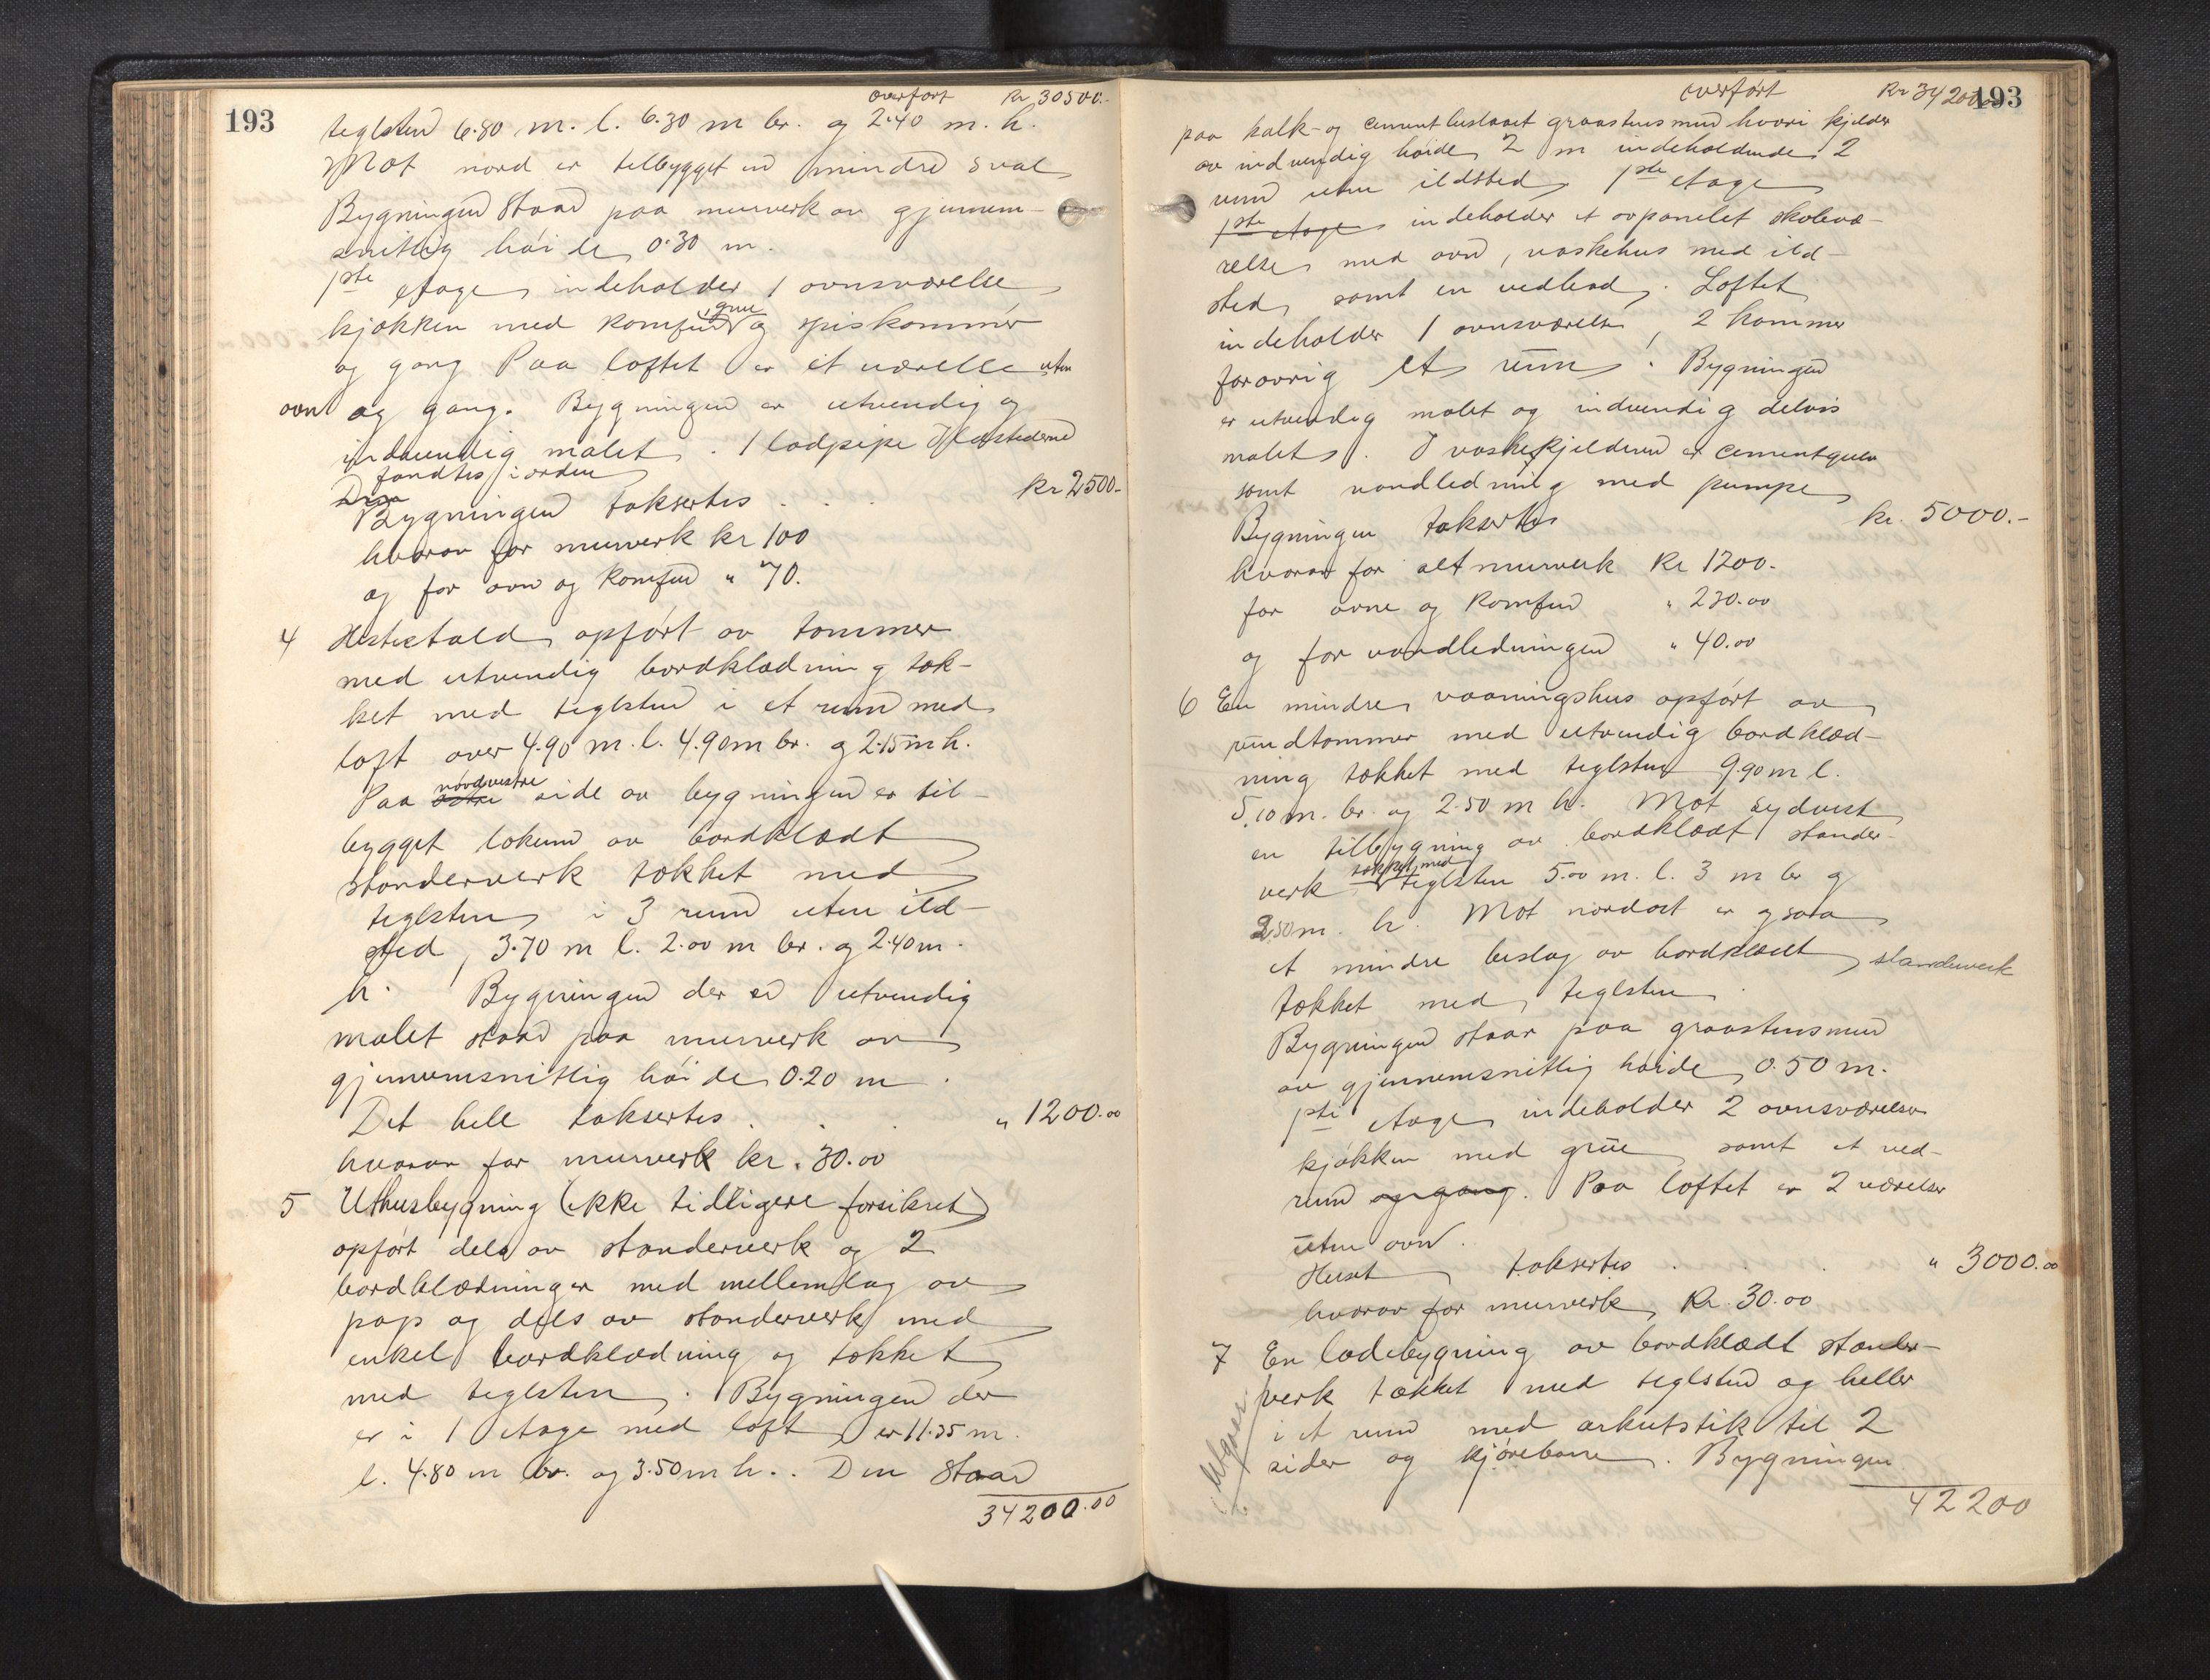 193
overført Kr 30500.-
teglsten 6.80 m. l. 6.30 m br. og 2.40 m. h.
Mot nord er tilbygget en mindre sval
Bygningen staar paa murverk av gjennem-
snitlig høide 0.30 m.
1ste etage indeholder 1 ovnsværelse
kjøkken med komfur, grue og spiskammer
og gang Paa loftet er et værelse uten
ovn og gang. Bygningen er utvendig og
indvendig malet. 1 ladpipe Ildstederne
fandtes i orden
Bygningen taksertes . . . kr 2500.-
hvorav for murverk kr 100
og for ovn og komfur " 70.
4 Hestestald opført av tømmer
med utvendig bordklædning tæk-
ket med teglsten i et rum med
loft over 4.90 m. l. 4.90 m br. og 2.15 m h.
Paa østre nordvestre side av bygningen er til-
bygget lokum av bordklædt
standerverk tækket med
teglsten i 3 rum uten ild-
sted, 3.70 m l. 2.00 m br. og 2.40 m.
h. Bygningen der er utvendig
malet staar paa murverk av
gjennemsnitlig høide 0.20 m.
Det hele taksertes . . . " 1200.00
hvorav for murverk kr. 30.00
5 Uthusbygning (ikke tidligere forsikret)
opført dels av standerverk og 2
bordklædninger med mellemlag av
pap og dels av standerverk med
enkel bordklædning og tækket
med teglsten. Bygningen der
er i 1 etage med loft er 11.35 m.
l. 4.80 m br. og 3.50 m h. Den staar
34200.00
overført Kr 34200.00
193
paa kalk- og cementbeslaaet graastensmur hvori kjelder
av indvendig høide 2 m indeholdende 2
rum uten ildsted 1ste etage
1ste etage indeholder et avpanelet skolevæ-
relse med ovn, vaskehus med ild-
sted, samt en vedbod. Loftet
indeholder 1 ovnsværelse, 2 kammer
forøvrig et rum. Bygningen
er utvendig malet og indvendig delvis
malet. I vaskekjelderen er cementgulv
samt vandledning med pumpe
Bygningen taksertes kr. 5000.-
hvorav for alt murverk Kr 1200.-
for ovne og komfur " 230.00
og for vandledningen " 40.00
6 En mindre vaaningshus opført av
rundtømmer med utvendig bordklæd-
ning tækket med teglsten 9.90 m l.
5.10 m. br. og 2.50 m h. Mot sydvest
en tilbygning av bordklædt stander-
verk tækket med teglsten 5.00 m. l. 3 m br og
2.50 m. h. Mot nordost er ogsaa
et mindre beslag av bordklædt standerverk
tækket med teglsten.
Bygningen staar paa graastensmur
av gjennemsnitlig høide 0.50 m.
1ste etage indeholder 2 ovnsværelser
kjøkken med grue samt et ved-
rum og gang. Paa loftet er 2 værelser
uten ovn.
Huset taksertes . . . " 3000.00
hvorav for murverk Kr. 30.00
7 En ladebygning av bordklædt stander-
verk tækket med teglsten og heller
i et rum med arkutstik til 2
sider og kjørebane. Bygningen
42200